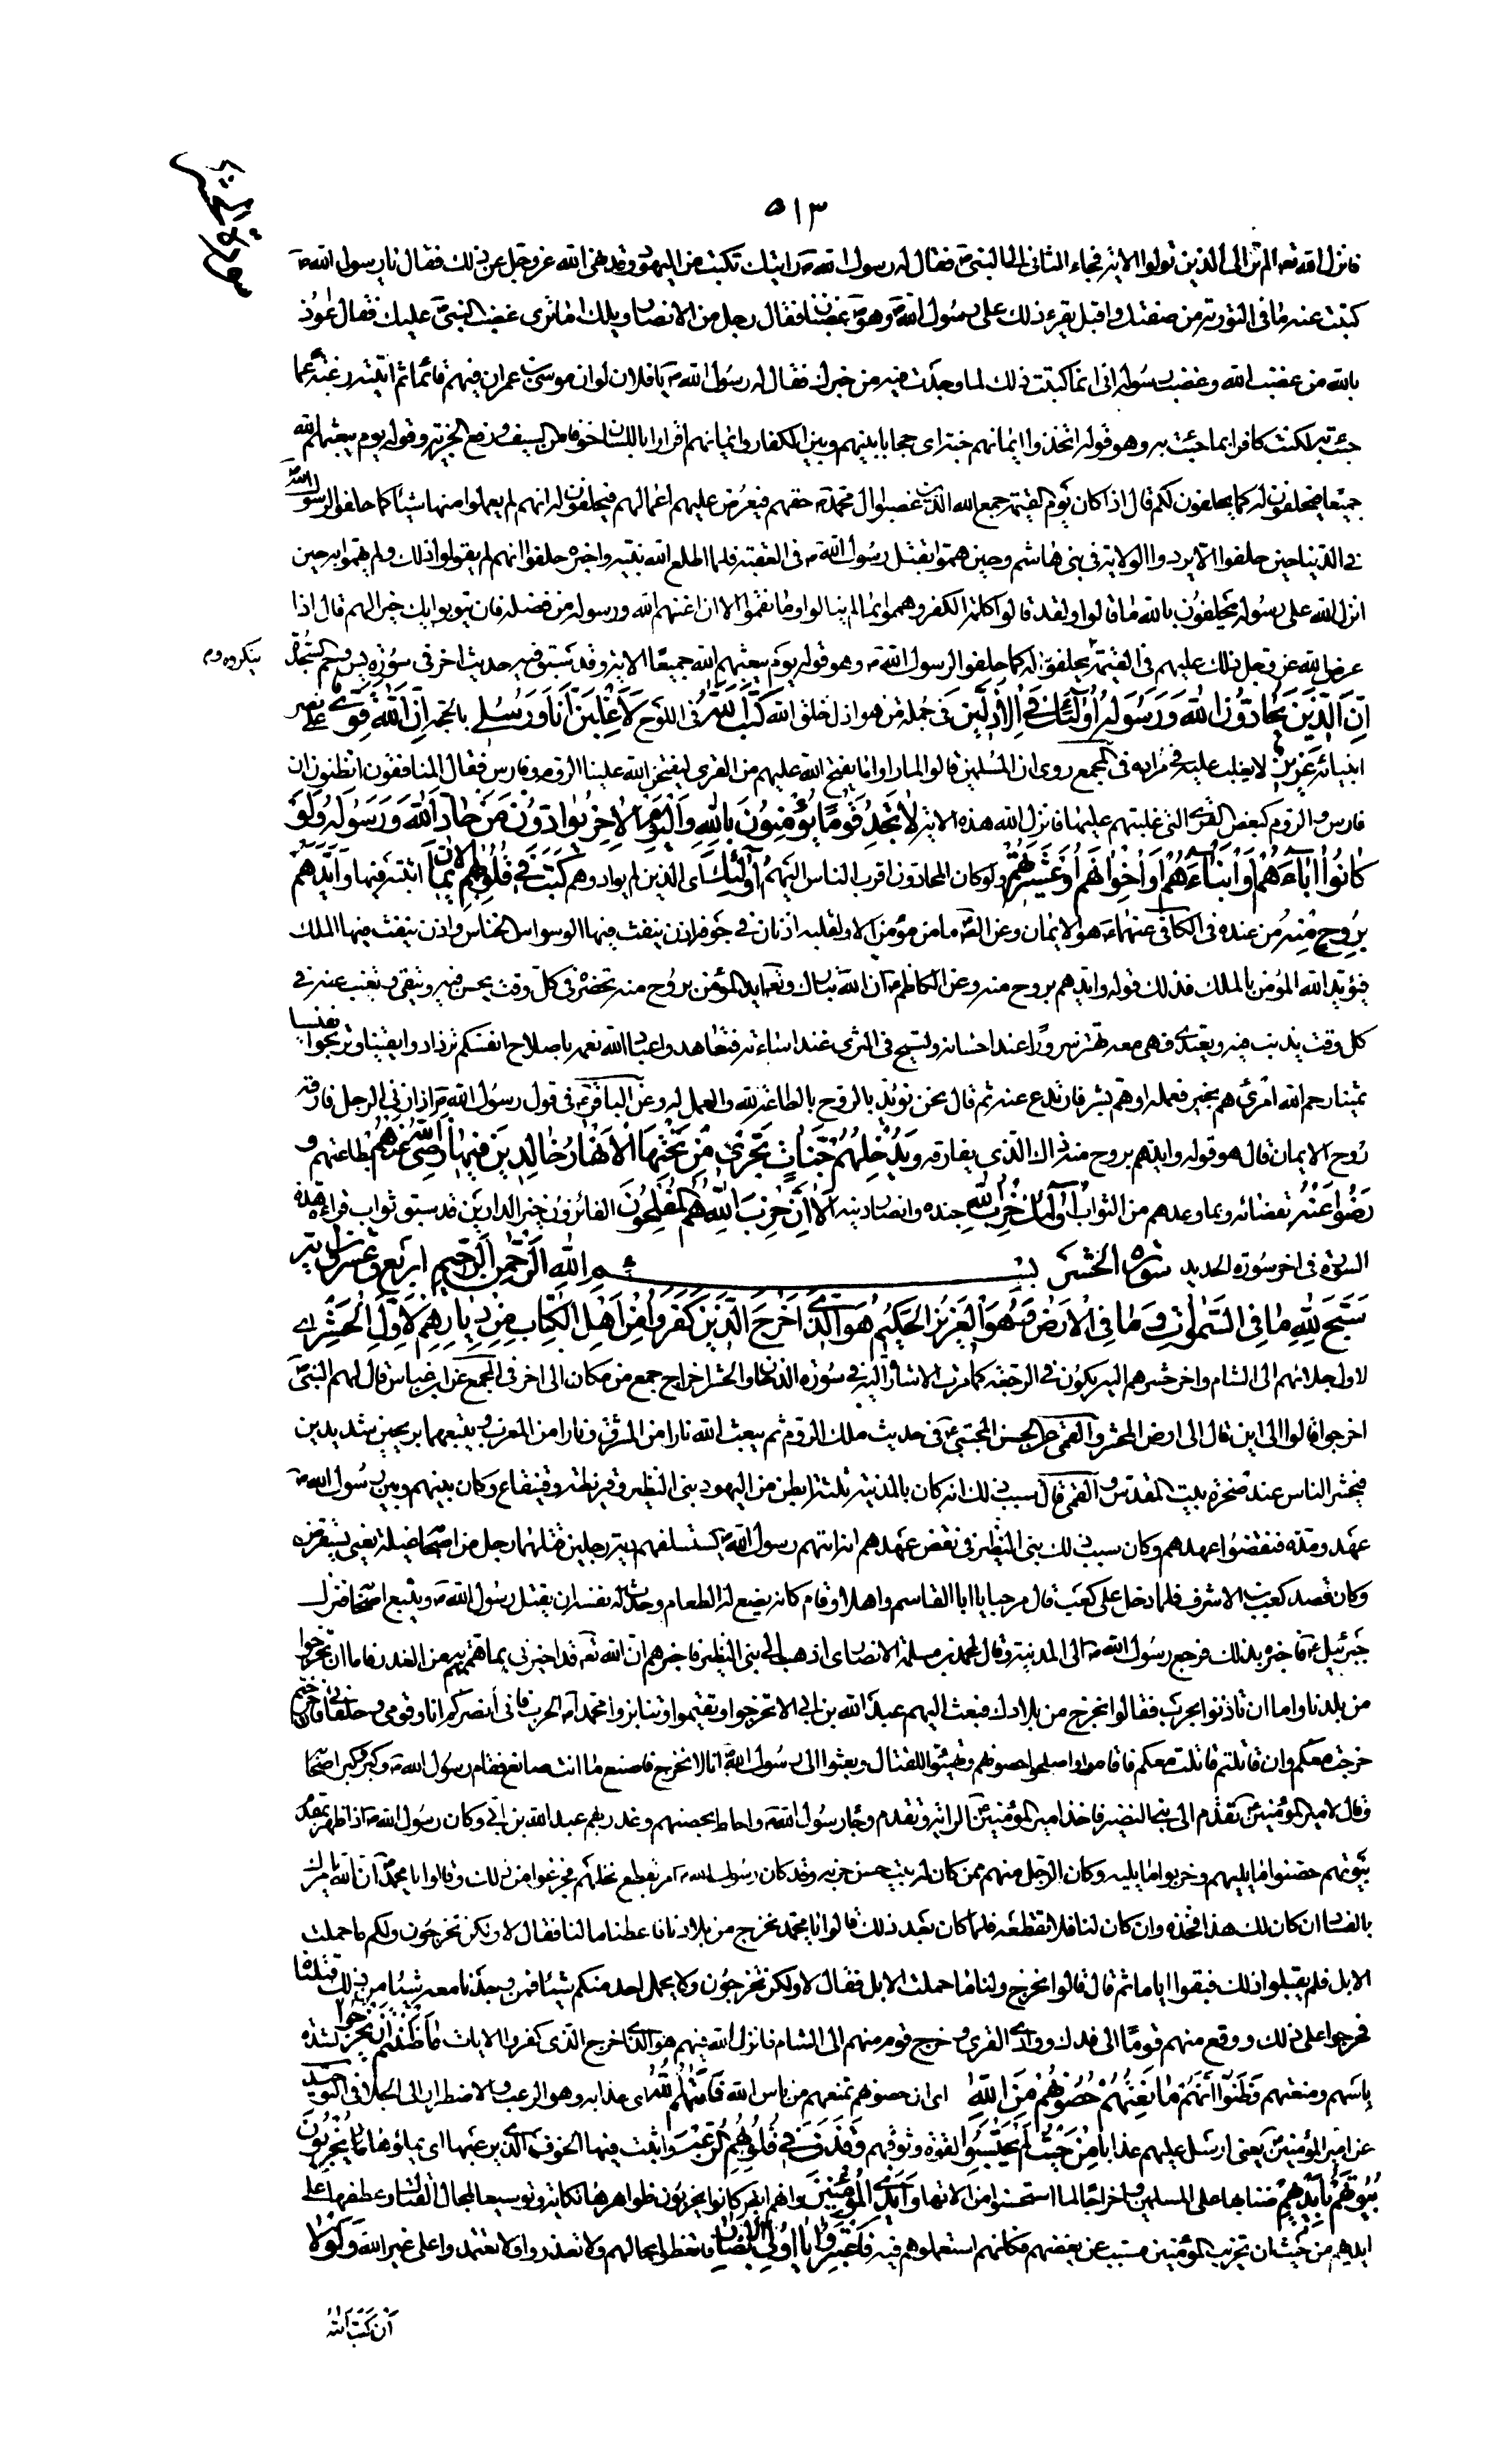 سورة الحشر
٥١٣
فانزل الله تعه الم تر الى الذين تولوا الاية فجاء الثانى الى النبىّ ص فقال له رسول الله ص رايتك تكتب من اليهود وقد نهى الله عز وجل عن ذلك فقال يا رسول الله ص
كتبت عنه ما فى التورية من صفتك واقبل يقرء ذلك على رسول الله ص وهو غضبان فقال رجل من الانصار ويلك اما ترى غضب النبىّ عليك فقال اعوذ
بالله من غضب الله وغضب رسوله انى انما كتبت ذلك لما وجدت فيه من خبرك فقال له رسول الله ص يا فلان لو ان موسى بن عمران فيهم قائما ثم اتيته رغبة عما
جئت به لكنت كافرا بما جئت به وهو قوله اتخذوا ايمانهم جنة اى حجابا بينهم وبين الكفار وايمانهم اقرارا باللسان خوفا من السيف ورفع الجزية وقوله يوم يبعثهم الله
جميعا فيحلفون له كما يحلفون لكم قال اذا كان يوم القيمة جمع الله الذين غصبوا ال محمد ص حقهم فيعرض عليهم اعمالهم فيحلفون له انهم لم يعملوا منها شيئا كما حلفوا لرسول الله ص
فى الدنيا حين حلفوا الا يردوا الولاية فى بنى هاشم وحين هموا بقتل رسول الله ص فى العقبة فلما اطلع الله نبيه واخبره حلفوا انهم لم يقولوا ذلك ولم يهموا به حين
انزل الله على رسوله يحلفون بالله ما قالوا ولقد قالوا كلمة الكفر وهموا بما لم ينالوا وما نقموا الا ان اغنيهم الله ورسوله من فضله فان يتوبوا يك خيرا لهم قال اذا
عرض الله عز وجل ذلك عليهم فى القيمة يحلفون له كما حلفوا لرسول الله ص وهو قوله يوم يبعثهم الله جميعا الاية وقد سبق فيه حديث اخر فى سورة يس وحم السجدة
اِنَّ الَّذِينَ يُحَادُّونَ اللهَ وَرَسُولَهُ اُولٰئِكَ فِى الْاَذَلِّينَ فى جملة من هو اذل خلق الله كَتَبَ اللهُ فى اللوح لَاَغْلِبَنَّ اَنَا وَرُسُلِى بالحجة اِنَّ اللهَ قَوِىٌّ على نصر
انبيائه عَزِيزٌ لا يغلب عليه فى مراده فى المجمع روى ان المسلمين قالوا لما راوا ما يفتح الله عليهم من القرى ليفتحن الله علينا الروم وفارس فقال المنافقون اتظنون ان
فارس والروم كبعض القرى التى غلبتهم عليها فانزل الله هذه الاية لَا تَجِدُ قَوْمًا يُؤْمِنُونَ بِاللهِ وَالْيَوْمِ الْاٰخِرِ يُوَادُّونَ مَنْ حَادَّ اللهَ وَرَسُولَهُ وَلَوْ
كَانُوا اٰبَاءَهُمْ اَوْ اَبْنَاءَهُمْ اَوْ اِخْوَانَهُمْ اَوْ عَشِيرَتَهُمْ ولو كان المحادون اقرب الناس اليهم اُولٰئِكَ اى الذين لم يوادوهم كَتَبَ فِى قُلُوبِهِمُ الْاِيمَانَ اثبته فيها وَاَيَّدَهُمْ
بِرُوحٍ مِنْهُ من عنده فى الكافى عنهما ع هو الايمان وعن الصّ ما من مؤمن الا ولقلبه اذنان فى جوفه اذن ينفث فيها الوسواس الخناس واذن ينفث فيها الملك
فيؤيد الله المؤمن بالملك فذلك قوله وايدهم بروح منه وعن الكاظم ع ان الله تبارك وتعه ايد المؤمن بروح منه تحضره فى كل وقت يحسن فيه ويتقى وتغيب عنه فى
كل وقت يذنب فيه ويعتدى فهى معه تهتز سرورا عند احسانه وتسيح فى الثرى عند اساءته فتعاهدوا عباد الله نعمه باصلاح انفسكم تزدادوا يقينا وتربحوا نفيسا
ثمينا رحم الله امرئ هم بخير فعمله او هم بشر فارتدع عنه ثم قال نحن نؤيد بالروح بالطاعة لله والعمل له وعن الباقر ع فى قول رسول الله ص اذا زنى الرجل فارقه
روح الايمان قال هو قوله وايدهم بروح منه ذاك الذى يفارقه وَيُدْخِلُهُمْ جَنَّاتٍ تَجْرِى مِنْ تَحْتِهَا الْاَنْهَارُ خَالِدِينَ فِيهَا رَضِىَ اللهُ عَنْهُمْ بطاعتهم وَ
رَضُوا عَنْهُ بقضائه وبما وعدهم من الثواب اُولٰئِكَ حِزْبُ اللهِ جنده وانصار دينه اَلَا اِنَّ حِزْبَ اللهِ هُمُ الْمُفْلِحُونَ الفائزون بخير الدارين قد سبق ثواب قراءة هذه
السورة فى اخر سورة الحديد سورة الحشر بسم الله الرحمن الرحيم اربع وعشرون اية
سَبَّحَ لِلّٰهِ مَا فِى السَّمٰوَاتِ وَمَا فِى الْاَرْضِ وَهُوَ الْعَزِيزُ الْحَكِيمُ هُوَ الَّذِى اَخْرَجَ الَّذِينَ كَفَرُوا مِنْ اَهْلِ الْكِتَابِ مِنْ دِيَارِهِمْ لِاَوَّلِ الْحَشْرِ اى
لاول جلائهم الى الشام واخر حشرهم اليه يكون فى الرجعة كما مرت الاشارة اليه فى سورة الدخان والحشر اخراج جمع من مكان الى اخر فى المجمع عن ابن عباس قال لهم النبىّ ص
اخرجوا قالوا الى اين قال الى ارض المحشر والقمى عن الحسن المجتبى ع فى حديث ملك الروم ثم يبعث الله نارا من المشرق ونارا من المغرب ويتبعهما بريحين شديدين
فيحشر الناس عند صخرة بيت المقدس والقمى قال سبب ذلك انه كان بالمدينة ثلثة ابطن من اليهود بنى النظير وقريظة وقينقاع وكان بينهم وبين رسول الله ص
عهد ومدة فنقضوا عهدهم وكان سبب ذلك بنى النظير فى نقض عهدهم انه اتيهم رسول الله ص يستسلفهم دية رجلين قتلهما رجل من اصحابه غيلة يعنى يستقرضه
وكان قصد كعب بن الاشرف فلما دخل على كعب قال مرحبا يا ابا القاسم واهلا وقام كانه يضع له الطعام وحدث نفسه ان يقتل رسول الله ص ويتبع اصحابه فنزل
جبرئيل ع فاخبره بذلك فرجع رسول الله ص الى المدينة وقال لمحمد بن مسلمة الانصارى اذهب الى بنى النظير فاخبرهم ان الله تعه قد اخبرنى بما هممتم به من الغدر فاما ان تخرجوا
من بلدنا واما ان تاذنوا بحرب فقالوا نخرج من بلادك فبعث اليهم عبد الله بن ابى الا تخرجوا وتقيموا وتنابزوا محمدا ص الحرب فانى انصركم انا وقومى وحلفائى فان خرجتم
خرجت معكم وان قاتلتم قاتلت معكم فاقاموا واصلحوا حصونهم وتهيئوا للقتال وبعثوا الى رسول الله ص انا لا نخرج فاصنع ما انت صانع فقام رسول الله ص وكبر وكبر اصحابه
وقال لامير المؤمنين ع تقدم الى بنى النضير فاخذ امير المؤمنين ع الراية وتقدم وجاء رسول الله ص واحاط بحصنهم وغدر بهم عبد الله بن ابى وكان رسول الله ص اذا ظهر بمقدم
بيوتهم حصنوا ما يليهم وخربوا ما يليه وكان الرجل منهم ممن كان له بيت حسن خربه وقد كان رسول الله ص امر بقطع نخلهم فجزعوا من ذلك وقالوا يا محمد ان الله يامرك
بالفساد ان كان لك هذا فخذه وان كان لنا فلا تقطعه فلما كان بعد ذلك قالوا يا محمد نخرج من بلادنا فاعطنا ما لنا فقال لا ولكن تخرجون ولكم ما حملت
الابل فلم يقبلوا ذلك فبقوا اياما ثم قال قالوا نخرج ولنا ما حملت الابل فقال لا ولكن تخرجون ولا يحمل احد منكم شيئا فمن وجدنا معه شيئا من ذلك قتلناه
فخرجوا على ذلك ووقع منهم قوما الى فدك ووادى القرى وخرج قوم منهم الى الشام فانزل الله فيهم هو الذى اخرج الذى كفروا الايات مَا ظَنَنْتُمْ اَنْ يَخْرُجُوا لشدة
باسهم ومنعتهم وَظَنُّوا اَنَّهُمْ مَانِعَتُهُمْ حُصُونُهُمْ مِنَ اللهِ اى ان حصونهم تمنعهم من باس الله فَاَتٰيهُمُ اللهُ اى عذابه وهو الرعب والاضطرار الى الجلاء فى التوحيد
عن امير المؤمنين ع يعنى ارسل عليهم عذابا مِنْ حَيْثُ لَمْ يَحْتَسِبُوا لقوة وثوقهم وَقَذَفَ فِى قُلُوبِهِمُ الرُّعْبَ واثبت فيها الخوف الذى يرعبها اى يملؤها يُخْرِبُونَ
بُيُوتَهُمْ بِاَيْدِيهِمْ ضنا بها على المسلمين واخراجا لما استحسنوا من الاتها وَاَيْدِى الْمُؤْمِنِينَ فانهم ايضا كانوا يخربون ظواهرها نكاية وتوسيعا لمجال القتال وعطفها على
ايديهم من حيث ان تخريب المؤمنين مسبب عن بغضهم فكانهم استعملوهم فيه فَاعْتَبِرُوا يَا اُولِى الْاَبْصَارِ فاتعظوا بحالهم ولا تغدروا ولا تعتمدوا على غير الله وَلَوْلَا
اَنْ كَتَبَ اللهُ